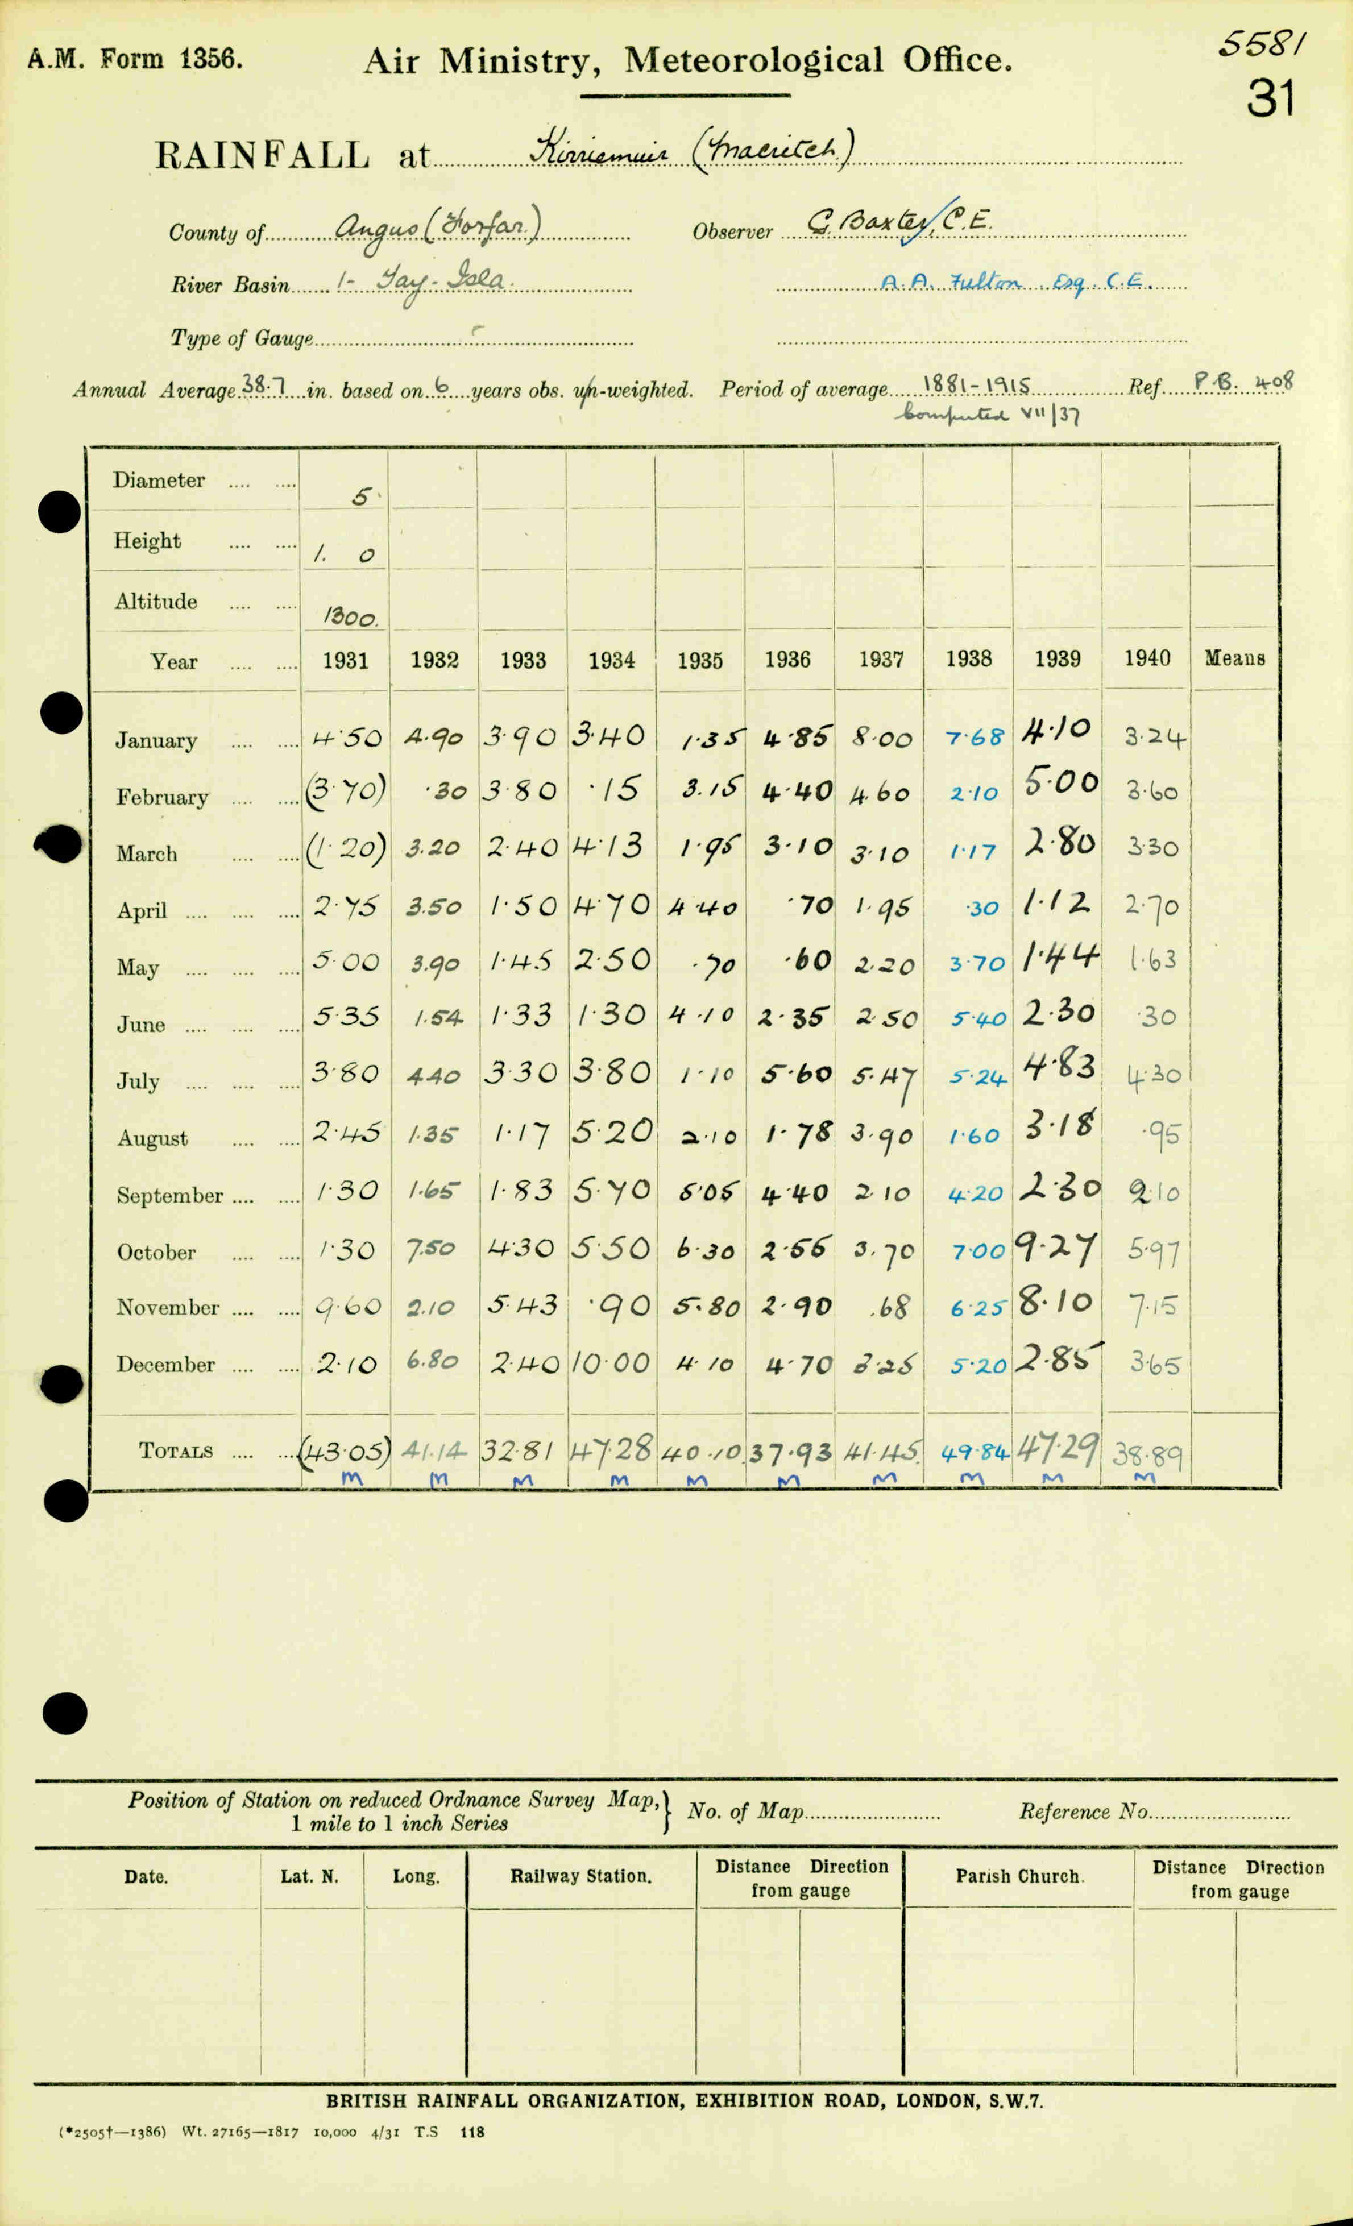 A.M. Form 1356.
Air Ministry, Meteorological Office.
5581
31
RAINFALL at Kirriemuir (Macritch)
County of Angus (Forfar)
Observer G. Baxter, C.E.
River Basin 1- Tay - Isla.
A. A. Fulton . Esq . C.E.
Type of Gauge
Annual Average 38.7 in. based on 6 years obs. un-weighted. Period of average 1881-1915 Ref. P.B. 408
Computed VII/37
Diameter 5
Height 1. 0
Altitude 1300.
Year 1931 1932 1933 1934 1935 1936 1937 1938 1939 1940 Means
January 4.50 4.90 3.90 3.40 1.35 4.85 8.00 7.68 4.10 3.24
February (3.70) .30 3.80 .15 3.15 4.40 4.60 2.10 5.00 3.60
March (1.20) 3.20 2.40 4.13 1.95 3.10 3.10 1.17 2.80 3.30
April 2.75 3.50 1.50 4.70 4.40 .70 1.95 .30 1.12 2.70
May 5.00 3.90 1.45 2.50 .70 .60 2.20 3.70 1.44 1.63
June 5.35 1.54 1.33 1.30 4.10 2.35 2.50 5.40 2.30 .30
July 3.80 4.40 3.30 3.80 1.10 5.60 5.47 5.24 4.83 4.30
August 2.45 1.35 1.17 5.20 2.10 1.78 3.90 1.60 3.18 .95
September 1.30 1.65 1.83 5.70 5.05 4.40 2.10 4.20 2.30 2.10
October 1.30 7.50 4.30 5.50 6.30 2.55 3.70 7.00 9.27 5.97
November 9.60 2.10 5.43 .90 5.80 2.90 .68 6.25 8.10 7.15
December 2.10 6.80 2.40 10.00 4.10 4.70 3.25 5.20 2.85 3.65
TOTALS (43.05) 41.14 32.81 47.28 40.10 37.93 41.45 49.84 47.29 38.89
M M M M M M M M M M
Position of Station on reduced Ordnance Survey Map,
1 mile to 1 inch Series
No. of Map
Reference No.
Date. Lat. N. Long. Railway Station. Distance Direction from gauge Parish Church. Distance Direction from gauge
BRITISH RAINFALL ORGANIZATION, EXHIBITION ROAD, LONDON, S.W.7.
(*2505†—1386) Wt. 27165—1817 10,000 4/31 T.S 118